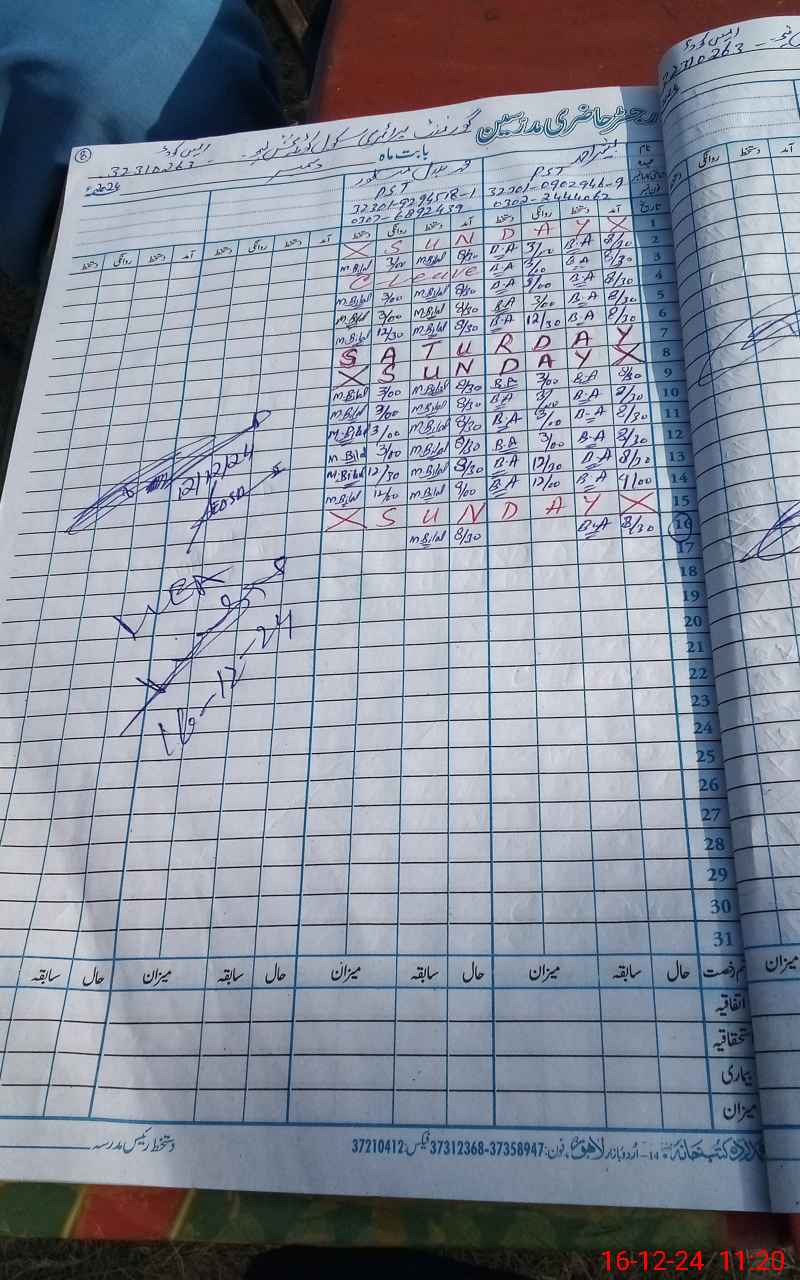 رجسٹر حاضری مدرسین
گورنمنٹ پرائمری سکول
ایمس کوڈ
32310263
بابت ماہ
دسمبر
2024
نام
عہدہ
تاریخ
PST
32301-0902946-9
0302-2444062
PST
32301-9294518-1
0302-6892439
آمد دستخط روانگی دستخط آمد دستخط روانگی دستخط آمد دستخط روانگی دستخط آمد دستخط روانگی دستخط
1 X S U N D A Y X
2 8/30 B.A 3/00 B.A 8/30 M.Bilal 3/00 M.Bilal
3 8/30 B.A 3/00 B.A C leave
4 8/30 B.A 3/00 B.A 8/30 M.Bilal 3/00 M.Bilal
5 8/30 B.A 3/00 B.A 8/30 M.Bilal 3/00 M.Bilal
6 8/30 B.A 12/30 B.A 8/30 M.Bilal 12/30 M.Bilal
7 S A T U R D A Y
8 X S U N D A Y X
9 8/30 B.A 3/00 B.A 8/30 M.Bilal 3/00 M.Bilal
10 8/30 B.A 3/00 B.A 8/30 M.Bilal 3/00 M.Bilal
11 8/30 B.A 3/00 B.A 8/30 M.Bilal 3/00 M.Bilal
12 8/30 B.A 3/00 B.A 8/30 M.Bilal 3/00 M.Bilal
13 8/30 B.A 12/30 B.A 8/30 M.Bilal 12/30 M.Bilal
14 9/00 B.A 12/00 B.A 9/00 M.Bilal 12/00 M.Bilal
15 X S U N D A Y X
16 8/30 B.A 8/30 M.Bilal
17
18
19
20
21
22
23
24
25
26
27
28
29
30
31
12/12/24
16-12-24
قسم رخصت حال سابقہ میزان حال سابقہ میزان حال سابقہ میزان حال سابقہ
اتفاقیہ
استحقاقیہ
بیماری
میزان
کتب خانہ 14-اُردو بازار لاہور، فون: 37358947-37312368 فیکس: 37210412
دستخط رئیس مدرسہ
ایمس کوڈ
32310263
آمد دستخط روانگی دستخط
میزان
16-12-24 11:20